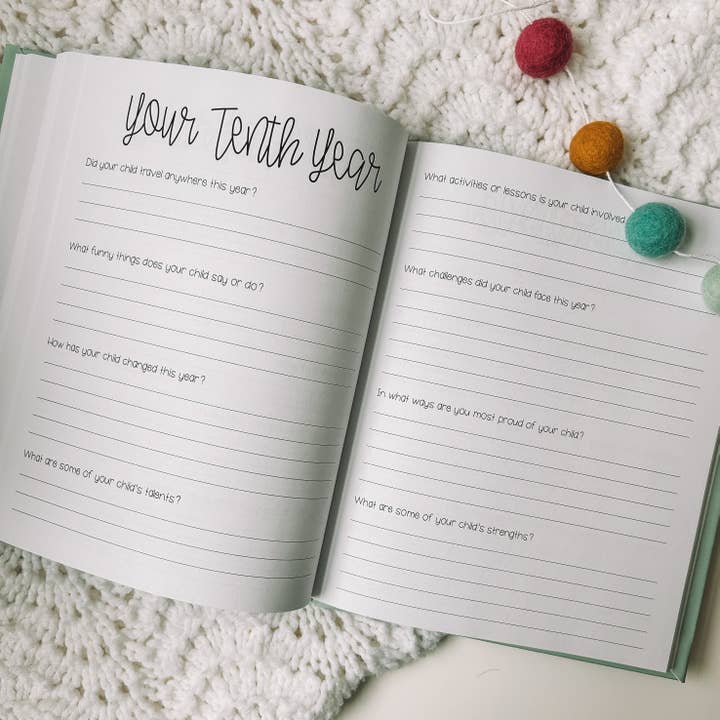 Your Tenth Year
Did your child travel anywhere this year?
What funny things does your child say or do?
How has your child changed this year?
What are some of your child's talents?
What activities or lessons is your child involved
What challenges did your child face this year?
In what ways are you most proud of your child?
What are some of your child's strengths?